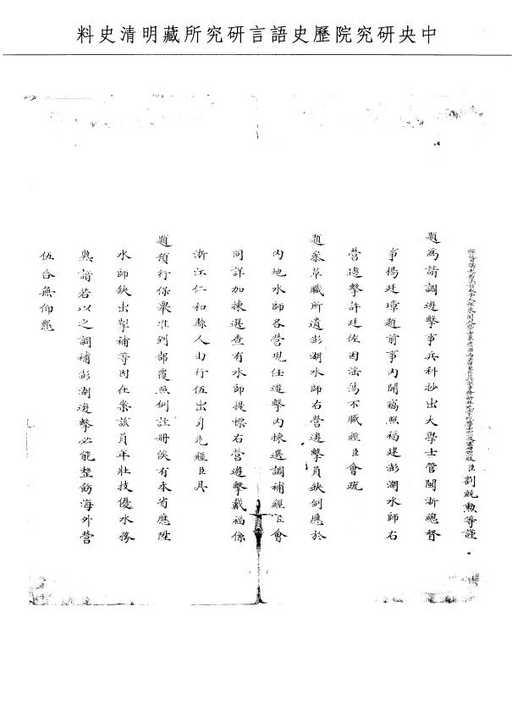 中央研究院歷史語言研究所藏明清史料
臣劉統勲等謹
題為請調遊擊事兵科抄出大學士管閩浙總督
事楊廷璋題前事內開竊照福建澎湖水師右
營遊擊許廷佐因浩蕩不職經臣會疏
題叅革職所遺澎湖水師右營遊擊員缺例應於
內地水師各營現任遊擊內揀選調補經臣會
同詳加揀選查有水師提標右營遊擊戴福係
浙江仁和縣人由行伍出身先經臣具
題預行保舉准到部覆照例註冊俟有本省應陞
水師缺出掣補等因在案該員年壯技優水務
熟諳若以之調補澎湖遊擊必能整飭海外營
伍合無仰懇